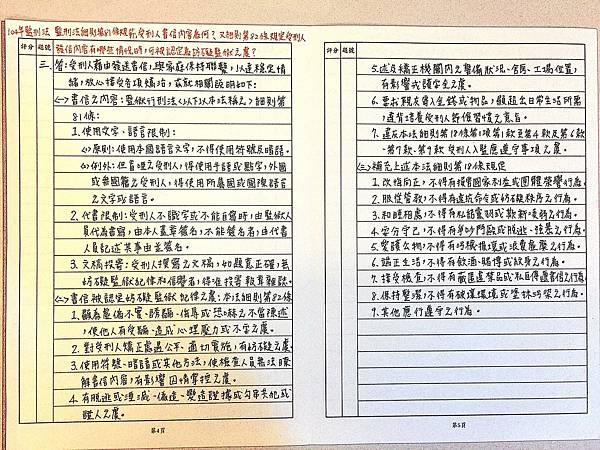 104年監刑法 監刑法細則第81條規範,受刑人書信內容為何?又細則第82條規定受刑人
發信內容有哪些情況時,可被認定為妨礙監獄之虞?
評分 題號
三、答:受刑人藉由發送書信,與家庭保持聯繫,以達穩定情
緒,放心接受各項矯治,茲就相關說明如下:
<一>書信之內容:監獄行刑法<以下以本法稱之>細則第
81條:
1. 使用文字、語言限制:
(1)原則:使用本國語言文字,不得使用符號及暗語。
(2)例外:但盲啞之受刑人,得使用手語或點字,外國
或無國籍之受刑人,得使用所屬國或國際語言
之文字或語言。
2. 代書限制:受刑人不識字或不能自寫時,由監獄人
員代為書寫,由本人蓋章簽名,不能簽名者,由代書
人員記述其事由並簽名。
3. 文稿投寄:受刑人撰寫之文稿,如題意正確,無
妨礙監獄紀律和信譽者,得准投寄報章雜誌。
<二>書信被認定妨礙監獄紀律之虞:本法細則第82條
1. 顯為虛偽不實、誘騙、侮辱或恐嚇之不當陳述
,使他人有受騙、造成心理壓力或不安之虞。
2. 對受刑人矯正處遇公平、適切實施,有妨礙之虞。
3. 使用符號、暗語或其他方法,使檢查人員無法瞭
解書信內容,有影響囚情掌控之虞。
4. 有脫逃或湮滅、偽造、變造證據或勾串共犯或
證人之虞。
第4頁
評分 題號
5. 述及矯正機關內之警備狀況、舍房、工場位置,
有影響戒護安全之虞。
6. 要求親友寄入金錢或物品,顯超出日常生活所需
,違背培養受刑人節儉習慣之意旨。
7. 違反本法細則第18條第1項第1款至第4款及第6款
、第7款、第9款受刑人入監應遵守事項之虞。
<三>補充上述本法細則第18條規定
1. 改悔向正,不得有損害國家利益或團體榮譽行為。
2. 服從管教,不得有違抗命令或妨礙秩序之行為。
3. 和睦相處,不得有私結黨羽或欺斬凌弱之行為。
4. 安分守己,不得有爭吵鬥毆或脫逃、強暴之行為。
5. 愛護公物,不得有污損撥還或浪費盤靡之行為。
6. 端正生活,不得有飲酒、賭博或紋身之行為。
7. 接受檢查,不得有藏匿違禁品或私自傳遞書信之行為。
8. 保持整潔,不得有破壞環境或塗抹污染之行為。
9. 其他應行遵守之行為。
第5頁